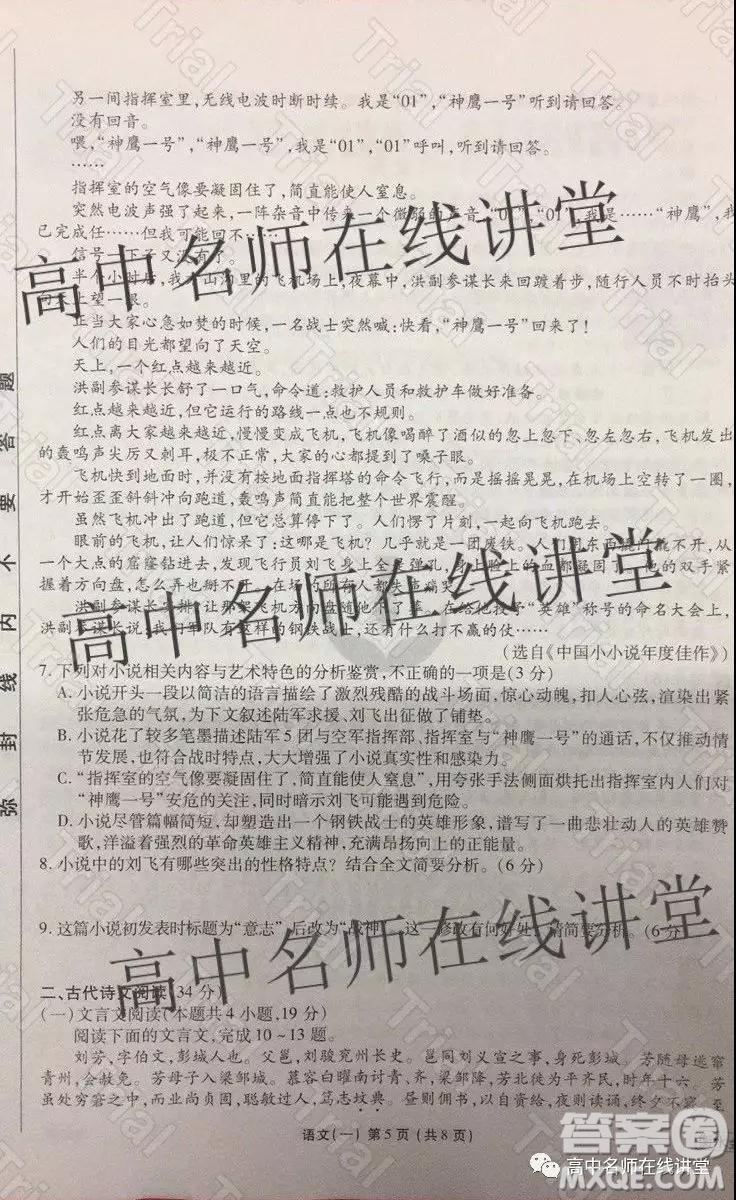 另一间指挥室里,无线电波时断时续。我是“01”,“神鹰一号”听到请回答。
没有回音。
喂,“神鹰一号”,“神鹰一号”,我是“01”,“01”呼叫,听到请回答。
……
指挥室的空气像要凝固住了,简直能使人窒息。
突然电波声强了起来,一阵杂音中传来一个微弱的声音,“01”,“01”,我是……“神鹰”,我
已完成任……但我可能回不……
信号一下子又没有了。
半个小时后,我 山沟里的飞机场上,夜幕中,洪副参谋长来回踱着步,随行人员不时抬头
向天上望一眼。
正当大家心急如焚的时候,一名战士突然喊:快看,“神鹰一号”回来了!
人们的目光都望向了天空。
天上,一个红点越来越近。
洪副参谋长长舒了一口气,命令道:救护人员和救护车做好准备。
红点越来越近,但它运行的路线一点也不规则。
红点离大家越来越近,慢慢变成飞机,飞机像喝醉了酒似的忽上忽下、忽左忽右,飞机发出
的轰鸣声尖厉又刺耳,极不正常,大家的心都提到了嗓子眼。
飞机快到地面时,并没有按地面指挥塔的命令飞行,而是摇摇晃晃,在机场上空转了一圈,
才开始歪歪斜斜冲向跑道,轰鸣声简直能把整个世界震醒。
虽然飞机冲出了跑道,但它总算停下了。人们愣了片刻,一起向飞机跑去。
眼前的飞机,让人们惊呆了:这哪是飞机?几乎就是一团废铁。人们用东西撬门撬不开,从
一个大点的窟窿钻进去,发现飞行员刘飞身上全是弹孔,身上脸上的血都凝固了。他的双手紧
握着方向盘,怎么弄也掰不开。在场的所有人都失声痛哭。
洪副参谋长安排,让那架飞机方向盘随他下了葬。在给他授予“英雄”称号的命名大会上,
洪副参谋长说:我们军队有这样的钢铁战士,还有什么打不赢的仗……
(选自《中国小小说年度佳作》)
7. 下列对小说相关内容与艺术特色的分析鉴赏,不正确的一项是(3 分)
A. 小说开头一段以简洁的语言描绘了激烈残酷的战斗场面,惊心动魄,扣人心弦,渲染出紧
张危急的气氛,为下文叙述陆军求援、刘飞出征做了铺垫。
B. 小说花了较多笔墨描述陆军 5 团与空军指挥部、指挥室与“神鹰一号”的通话,不仅推动情
节发展,也符合战时特点,大大增强了小说真实性和感染力。
C. “指挥室的空气像要凝固住了,简直能使人窒息”,用夸张手法侧面烘托出指挥室内人们对
“神鹰一号”安危的关注,同时暗示刘飞可能遇到危险。
D. 小说尽管篇幅简短,却塑造出一个钢铁战士的英雄形象,谱写了一曲悲壮动人的英雄赞
歌,洋溢着强烈的革命英雄主义精神,充满昂扬向上的正能量。
8. 小说中的刘飞有哪些突出的性格特点?结合全文简要分析。(6 分)
9. 这篇小说初发表时标题为“意志”,后改为“战神”,这一修改有何好处?请简要分析。(6 分)
二、古代诗文阅读(34 分)
(一)文言文阅读(本题共 4 小题,19 分)
阅读下面的文言文,完成 10~13 题。
刘芳,字伯文,彭城人也。父邕,刘骏兖州长史。邕同刘义宣之事,身死彭城。芳随母逃窜
青州,会赦免。芳母子入梁邹城。慕容白曜南讨青、齐,梁邹降,芳北徙为平齐民,时年十六。芳
虽处穷窘之中,而业尚贞固,聪敏过人,笃志坟典。昼则佣书,以自资给,夜则读诵,终夕不寝,至
语文(一) 第 5 页 (共 8 页)
弥 封 线 内 不 要 答 题
高中名师在线讲堂
高中名师在线讲堂
高中名师在线讲堂
高中名师在线讲堂
答案圈
MXQE.COM
Trial